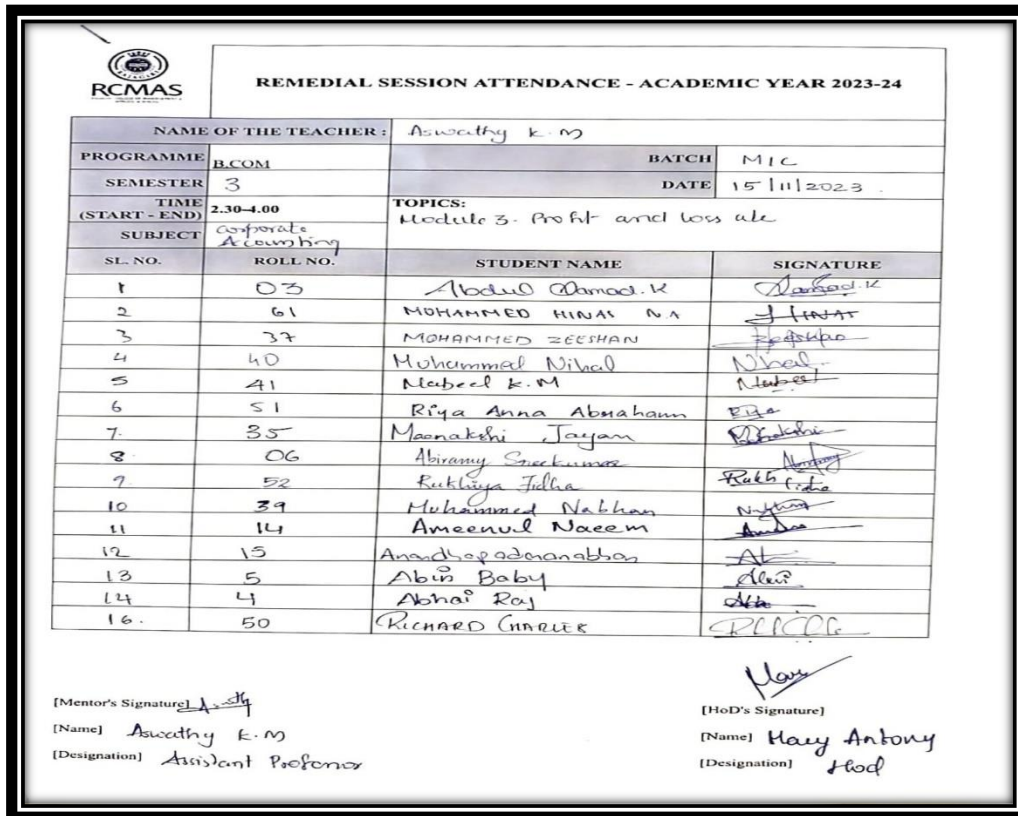 RCMAS
REMEDIAL SESSION ATTENDANCE - ACADEMIC YEAR 2023-24
NAME OF THE TEACHER : Aswathy K.M
PROGRAMME B.COM BATCH MIC
SEMESTER 3 DATE 15/11/2023
TIME (START - END) 2.30-4.00 TOPICS: Module 3. Profit and loss
SUBJECT Corporate Accounting
SL. NO. ROLL NO. STUDENT NAME SIGNATURE
1 03 Abdul K
2 61 MOHAMMED HINAS N.A HINAS
3 37 MOHAMMED ZEESHAN
4 40 Muhammad Nihal Nihal
5 41 Nabeel K.M Nabeel
6 51 Riya Anna Abraham Riya
7. 35 Meenakshi Jayan
8 06 Abiramy Sreekumar
9. 52 Rukhiya Fidha Rukh Fidha
10 39 Muhammed Nabhan Nabhan
11 14 Ameenul Naeem
12 15 Anandhapadmanabhan
13 5 Abin Baby
14 4 Abhai Raj
16. 50 RICHARD CHARLES
[Mentor's Signature]
[Name] Aswathy K.M
[Designation] Assistant Professor
[HoD's Signature]
[Name] Mary Antony
[Designation] Hod